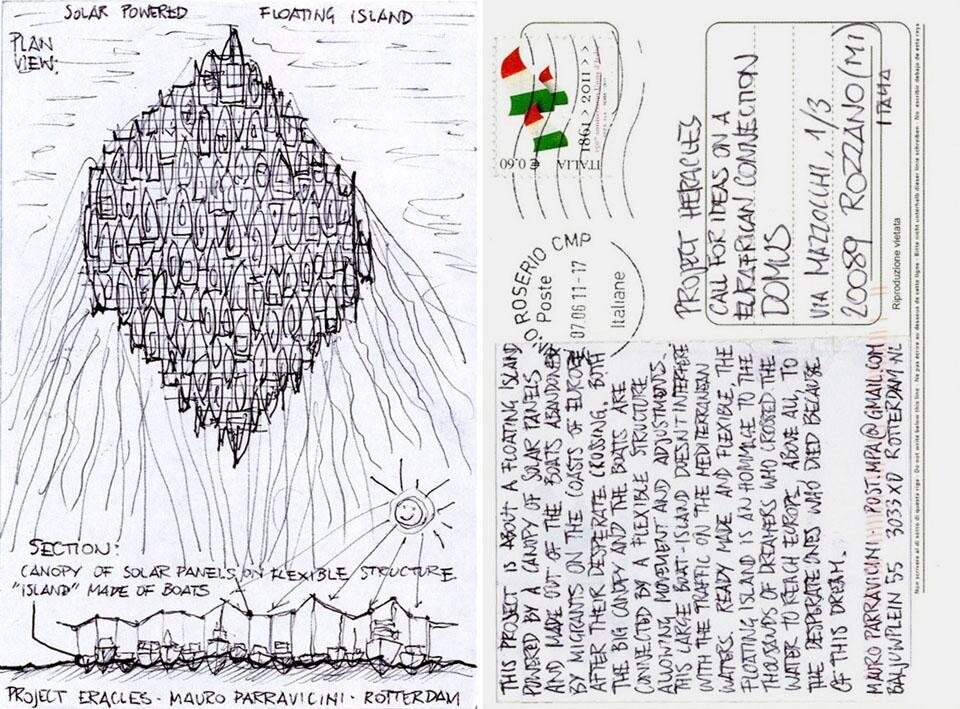 SOLAR POWERED FLOATING ISLAND
PLAN
VIEW:
SECTION:
CANOPY OF SOLAR PANELS ON FLEXIBLE STRUCTURE
"ISLAND" MADE OF BOATS
PROJECT ERACLES - MAURO PARRAVICINI - ROTTERDAM
1861 > 2011 > >
ITALIA € 0,60
ROSERIO CMP
Poste
07.06 11-17
Italiane
PROJECT HERACLES
CALL FOR IDEAS ON A
EURAFRICAN CONNECTION
DOMUS
VIA MAZZOCCHI, 1/3
20089 ROZZANO (MI)
ITALIA
Riproduzione vietata
Non scrivere al di sotto di questa riga - Do not write below this line - Ne pas écrire au dessous de cette ligne - Bitte nicht unterhalb dieser linie schreiben - No escribir debajo de esta raya
THIS PROJECT IS ABOUT A FLOATING ISLAND
POWERED BY A CANOPY OF SOLAR PANELS
AND MADE OUT OF THE BOATS ABANDONED
BY MIGRANTS ON THE COASTS OF EUROPE
AFTER THEIR DESPERATE CROSSING. BOTH
THE BIG CANOPY AND THE BOATS ARE
CONNECTED BY A FLEXIBLE STRUCTURE
ALLOWING MOVEMENT AND ADJUSTMENTS.
THIS LARGE BOAT-ISLAND DOESN'T INTERFERE
WITH THE TRAFFIC ON THE MEDITERRANEAN
WATERS. READY MADE AND FLEXIBLE THE
FLOATING ISLAND IS AN HOMMAGE TO THE
THOUSANDS OF DREAMERS WHO CROSSED THE
WATER TO REACH EUROPE. ABOVE ALL, TO
THE DESPERATE ONES WHO DIED BECAUSE
OF THIS DREAM.
MAURO PARRAVICINI POST.MPA@GMAIL.COM
BAJUWPLEIN 55 3033XD ROTTERDAM-NL